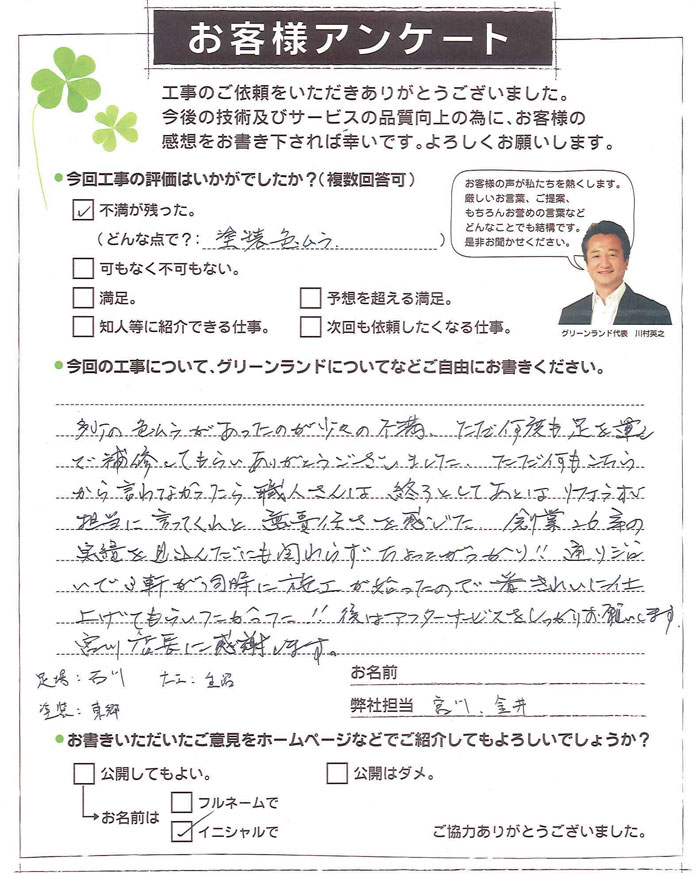 お客様アンケート
工事のご依頼をいただきありがとうございました。
今後の技術及びサービスの品質向上の為に、お客様の
感想をお書き下されば幸いです。よろしくお願いします。
●今回工事の評価はいかがでしたか?(複数回答可)
お客様の声が私たちを熱くします。
厳しいお言葉、ご提案、
もちろんお誉めの言葉など
どんなことでも結構です。
是非お聞かせください。
グリーンランド代表 川村英之
☑ 不満が残った。
(どんな点で?: 塗装色ムラ )
□ 可もなく不可もない。
□ 満足。 □ 予想を超える満足。
□ 知人等に紹介できる仕事。 □ 次回も依頼したくなる仕事。
●今回の工事について、グリーンランドについてなどご自由にお書きください。
色ムラがあったのが少々の不満、ただ何度も足を運ん
で補修してもらいありがとうございました、ただ何もこちら
から言わなかったら職人さんは終了としてあとはリフォーム
担当に言ってくれと無責任さを感じた 創業26年の
実績を見込んだにも関わらずちょっとがっかり!! 通り沿
いで3軒が同時に施工が始ったので一番きれいに仕
上げてもらいたかった!! 後はアフターサービスをしっかりお願いします
宮川店長に感謝します。
足場:石川
塗装:東郷
お名前
弊社担当 宮川、金井
●お書きいただいたご意見をホームページなどでご紹介してもよろしいでしょうか?
□ 公開してもよい。 □ 公開はダメ。
お名前は □ フルネームで
☑ イニシャルで
ご協力ありがとうございました。